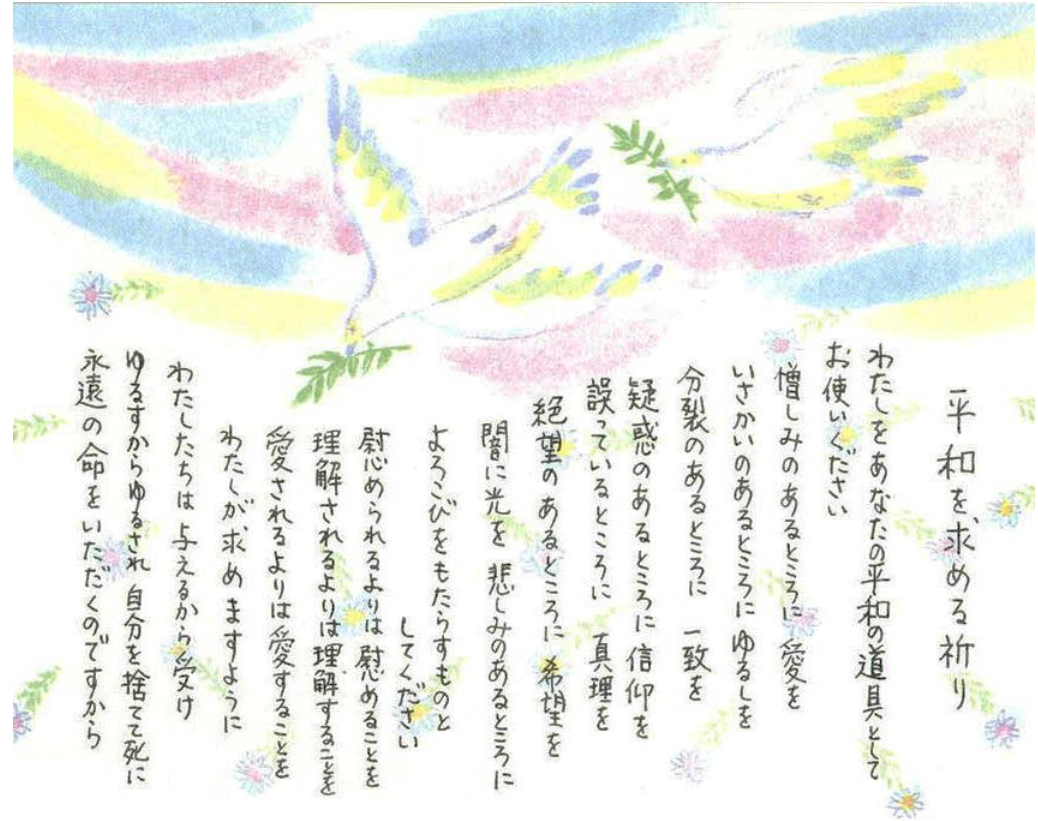 平和を求める祈り
わたしをあなたの平和の道具として
お使いください
憎しみのあるところに愛を
いさかいのあるところにゆるしを
分裂のあるところに 一致を
疑惑のあるところに信仰を
誤っているところに 真理を
絶望のあるところに 希望を
闇に光を 悲しみのあるところに
よろこびをもたらすものと
してください
慰められるよりは慰めることを
理解されるよりは理解することを
愛されるよりは愛することを
わたしが求めますように
わたしたちは与えるから受け
ゆるすからゆるされ 自分を捨てて死に
永遠の命をいただくのですから